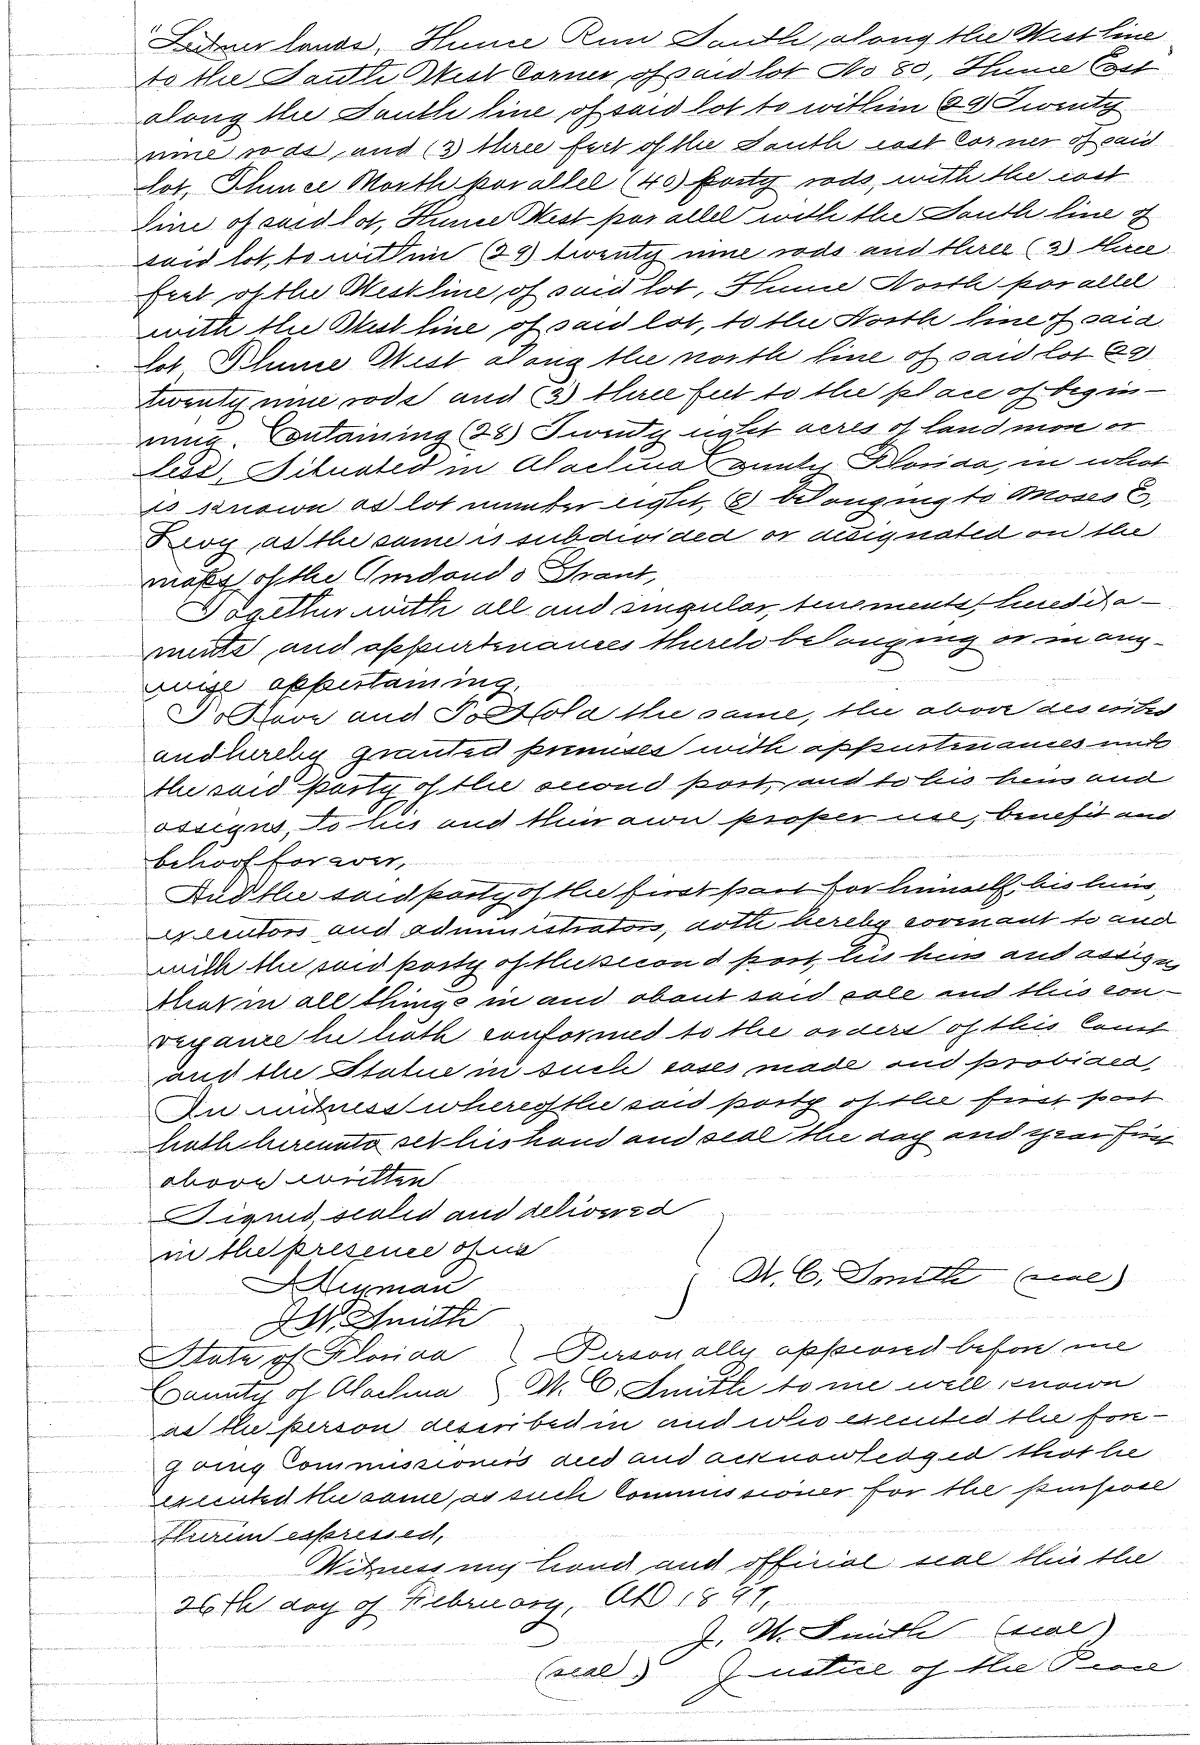 "Leitner lands, Thence Run South, along the West line
to the South West Corner, of said lot No 80, Thence East
along the South line, of said lot to within (29) Twenty
nine rods, and (3) three feet of the South east Corner of said
lot, Thence North parallel (40) forty rods, with the east
line of said lot, Thence West parallel with the South line of
said lot, to within (29) twenty nine rods and three (3) three
feet, of the West line, of said lot, Thence North parallel
with the West line of said lot, to the North line of said
lot, Thence West along the north line of said lot (29)
twenty nine rods and (3) three feet to the place of begin-
ning. Containing (28) Twenty eight acres of land more or
less, Situated in Alachua County Florida, in what
is known as lot number eight, (8) belonging to Moses E,
Levy, as the same is subdivided or designated on the
maps of the Grant,
Together with all and singular, tenements, heredita-
ments, and appurtenances thereto belonging or in any-
wise appertaining.
To Have and To Hold the same, the above described
and hereby granted premises with appurtenances unto
the said party of the second part, and to his heirs and
assigns, to his and their own proper use, benefit and
behoof forever,
And the said party of the first part for himself, his heirs,
executors and administrators, doth hereby covenant to and
with the said party of the second part, his heirs and assigns
that in all things in and about said sale and this con-
veyance he hath conformed to the orders of this Court
and the Statue in such cases made and probided,
In witness whereof the said party of the first part
hath hereunto set his hand and seal the day and year first
above written
Signed, sealed and delivered
in the presence of us
Hyman
W. C. Smith (seal)
J W. Smith
State of Florida } Personally appeared before me
County of Alachua } W. C. Smith to me well known
as the person described in and who executed the fore-
going Commissioners deed and acknowledged that he
executed the same, as such Commissioner for the purpose
therein expressed,
Witness my hand and official seal this the
26th day of February, AD 1897,
J. W. Smith (seal)
(seal) Justice of the Peace